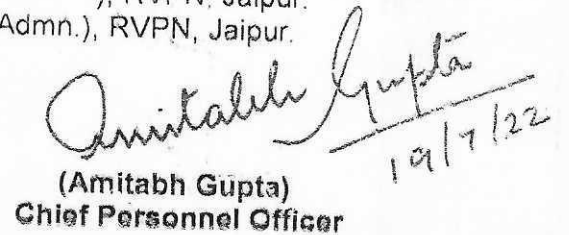 ), RVPN, Jaipur.
Admn.), RVPN, Jaipur.
Amitabh Gupta
19/7/22
(Amitabh Gupta)
Chief Personnel Officer